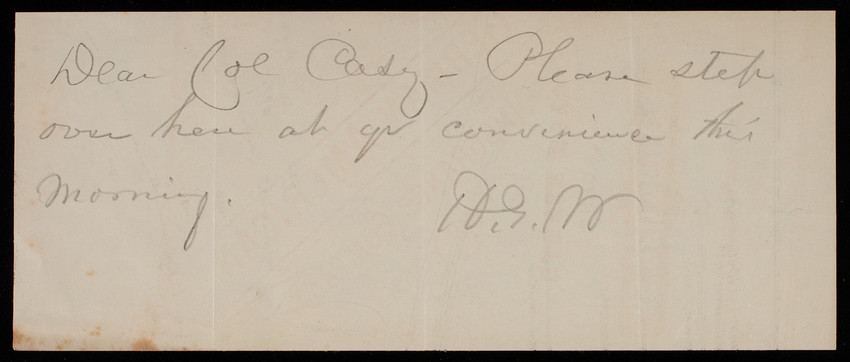 Dear Col Casey - Please step
over here at yr convenience this
morning.
H.G.W